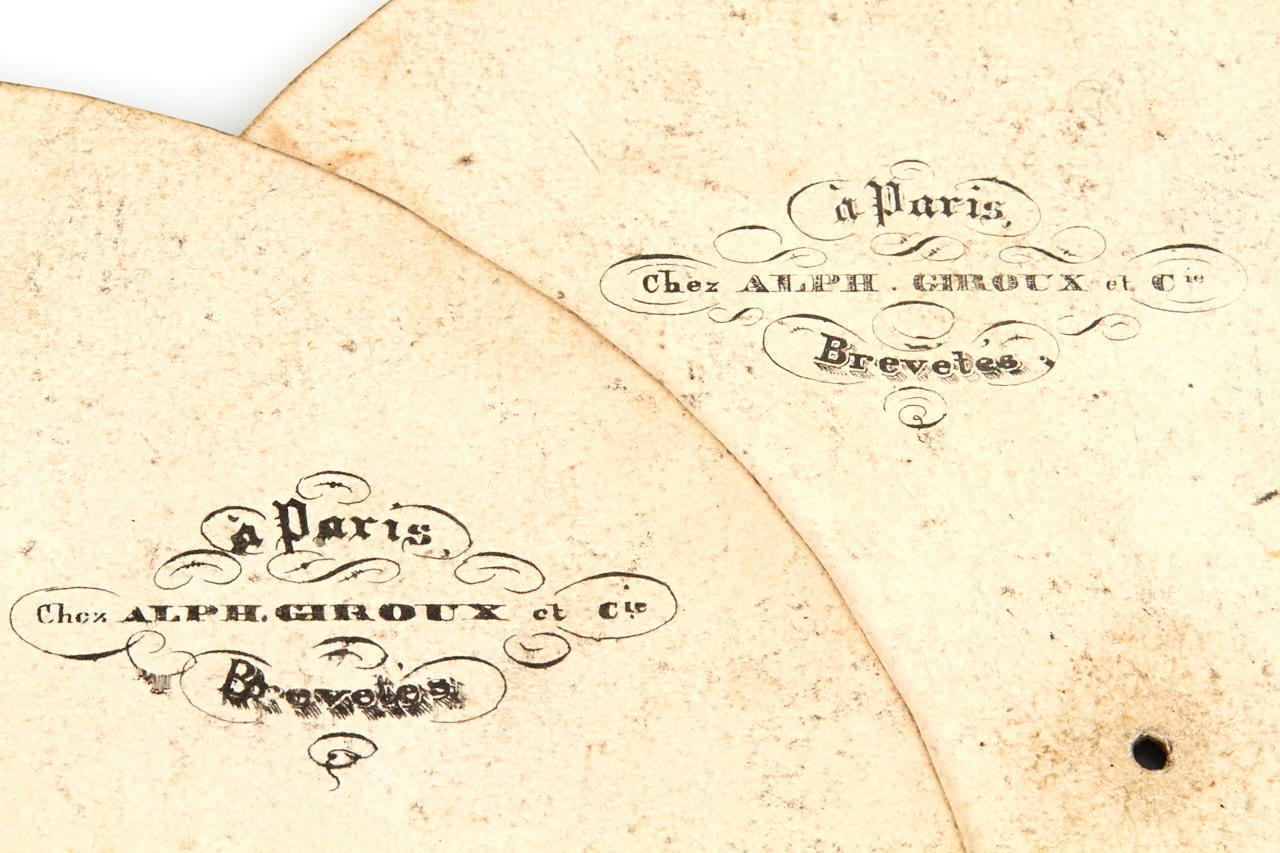 à Paris,
Chez ALPH. GIROUX et Cie
Brevetés
à Paris,
Chez ALPH. GIROUX et Cie
Brevetés